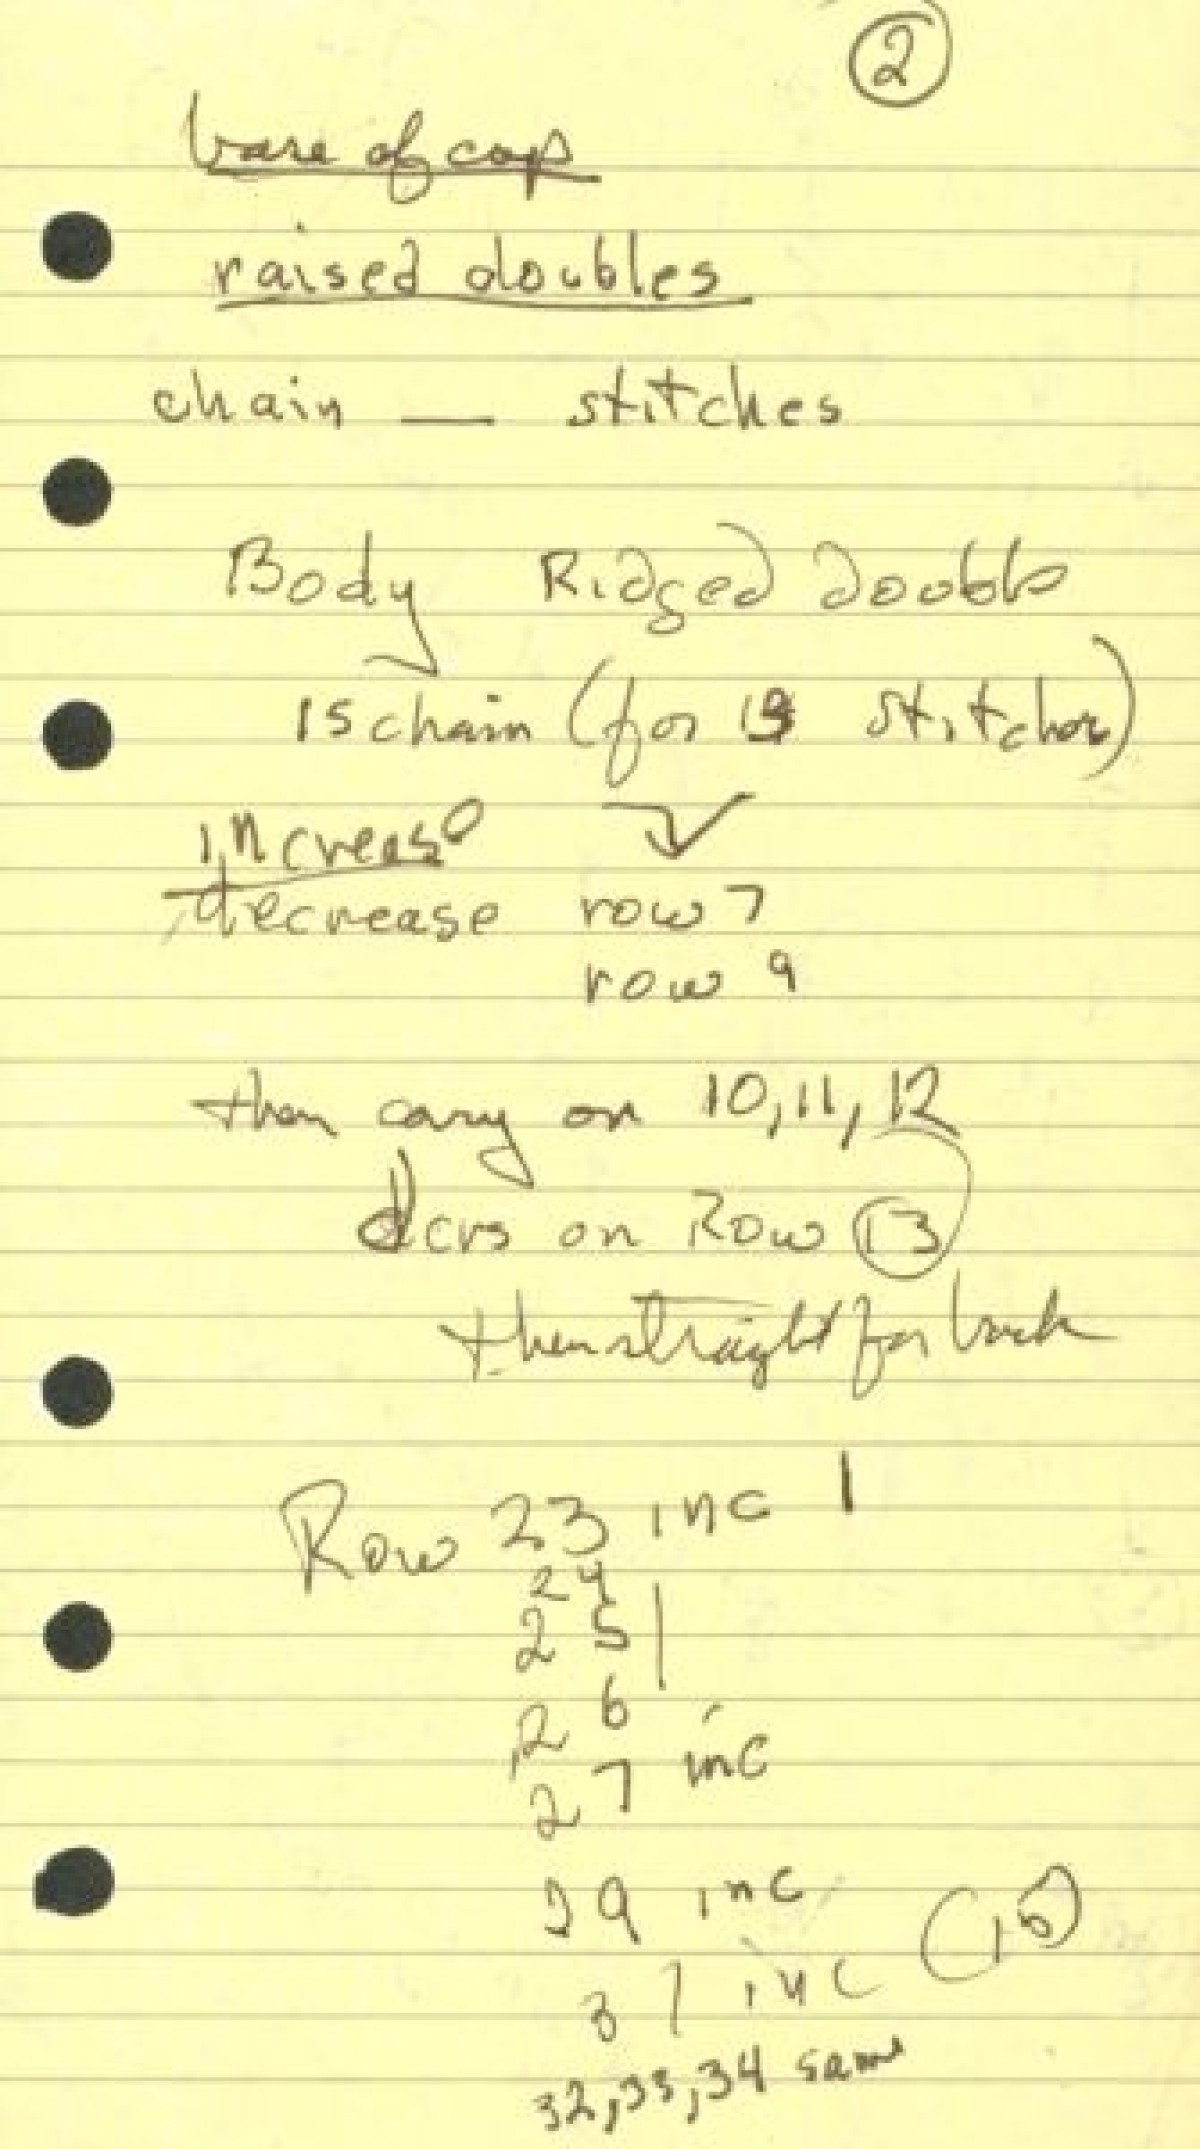 2
base of cap
raised doubles
chain __ stitches
Body Ridged double
15 chain (for stitches)
increase
decrease row 7
row 9
then cary on 10, 11, 12
dcrs on Row 13
then straight for back
Row 23 inc 1
24
25 |
26
27 inc
29 inc
31 inc (15)
32, 33, 34 same